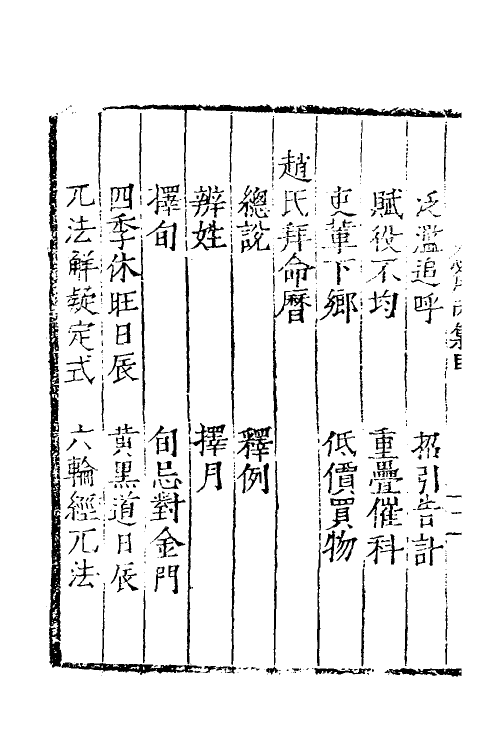 泛濫追呼　招引告訐
賦役不均　重疊催科
吏輩下鄉　低價買物
趙氏拜命曆
總說　釋例
辨姓　擇月
擇旬　旬忌對金門
四季休旺日辰　黃黑道日辰
兀法解疑定式　六輪經兀法